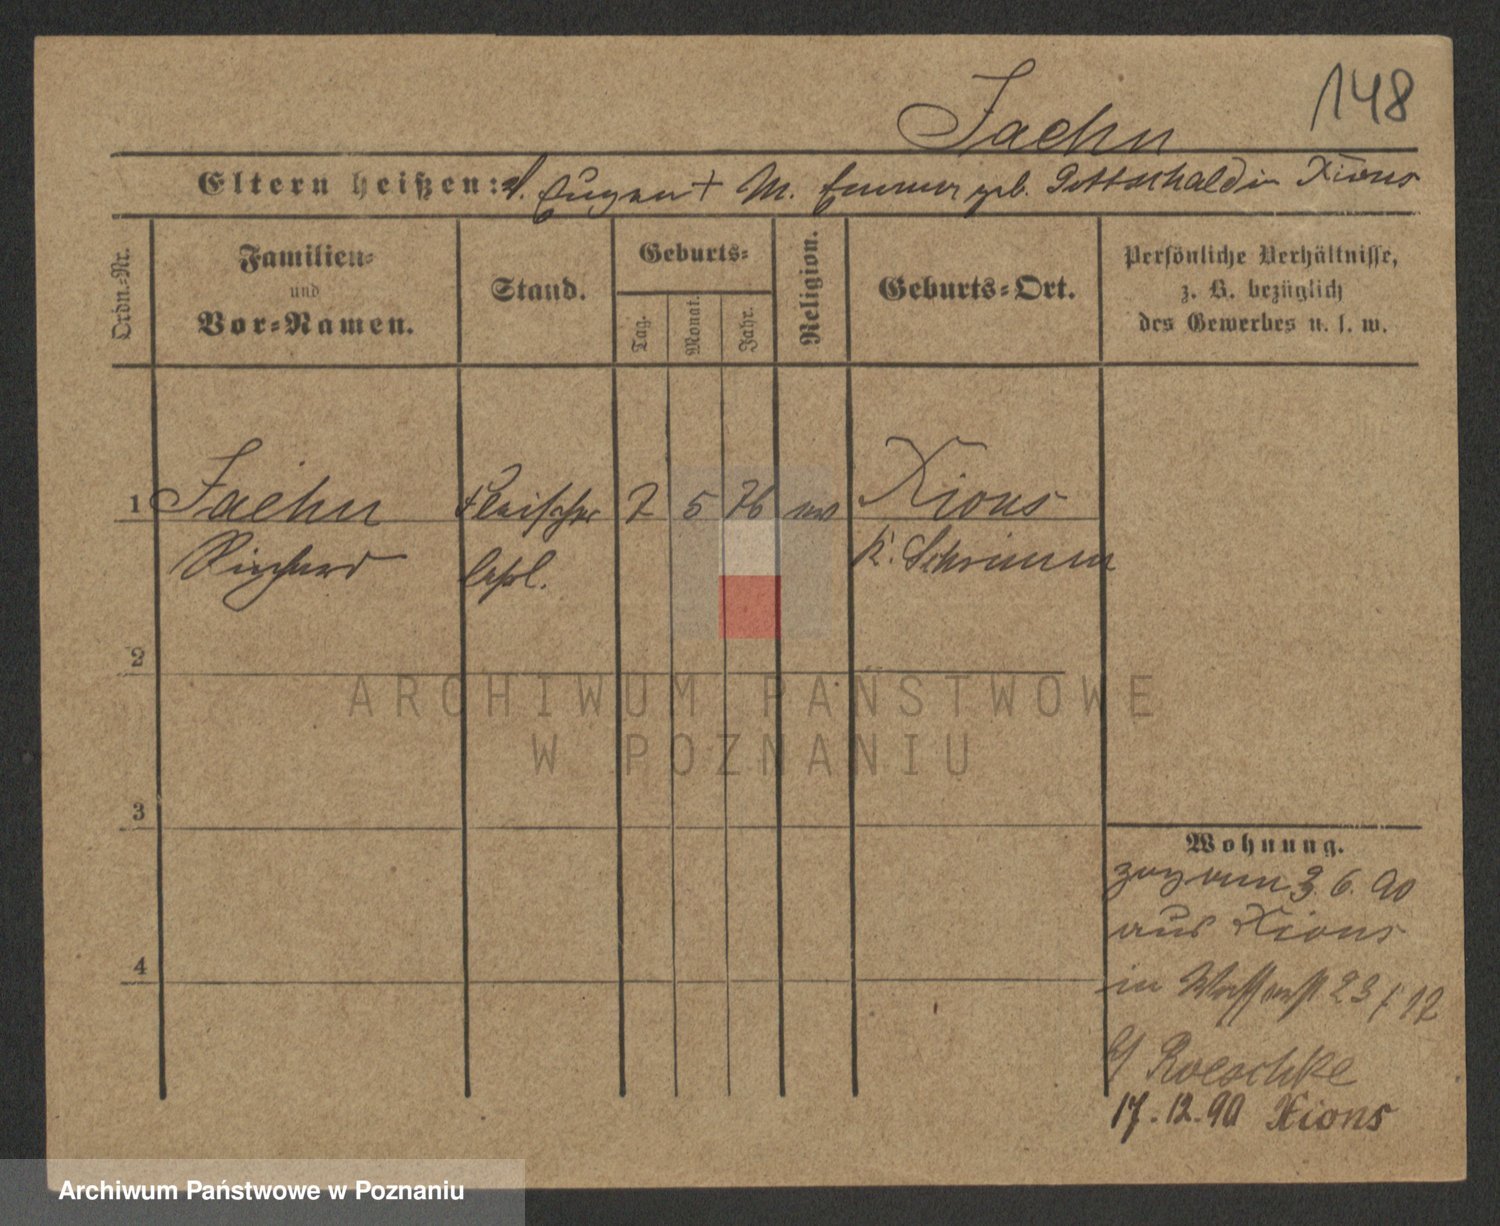 148
Jaehn
Eltern heißen: V. Eugen + M. Emma geb. Gottschald in Xions
Ordn.-Nr.
Familien-
und
Vor-Namen.
Stand.
Geburts-
Tag.
Monat.
Jahr.
Religion.
Geburts-Ort.
Persönliche Verhältnisse,
z. B. bezüglich
des Gewerbes u. s. w.
1 Jaehn Fleischer 7 5 76 ev Xions
Richard lehrl. K. Schrimm
2
3
4
Wohnung.
zog am 3. 6. 90
aus Xions
in 23 / 12
b/ Roeschke
17. 12. 90 Xions
ARCHIWUM PAŃSTWOWE
W POZNANIU
Archiwum Państwowe w Poznaniu